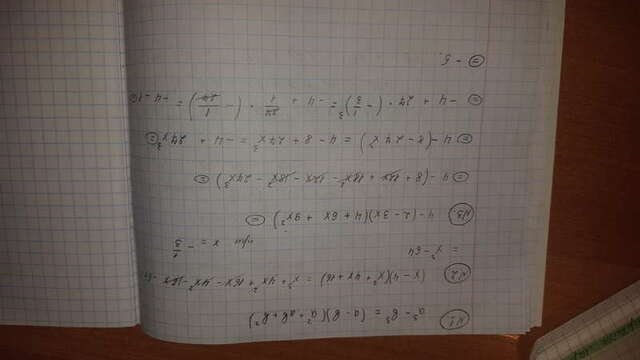 N1. a³ - b³ = (a - b)(a² + ab + b²)
N2. (x - 4)(x² + 4x + 16) = x³ + 4x² + 16x - 4x² - 16x - 64
= x³ - 64
при x = - 1/3
N3. 4 - (2 - 3x)(4 + 6x + 9x²) =
= 4 - (8 + 12x + 18x² - 12x - 18x² - 27x³) =
= 4 - (8 - 27x³) = 4 - 8 + 27x³ = -4 + 27x³ =
= -4 + 27 · (- 1/3)³ = -4 + 27/1 · (- 1/27) = -4 - 1 =
= - 5.